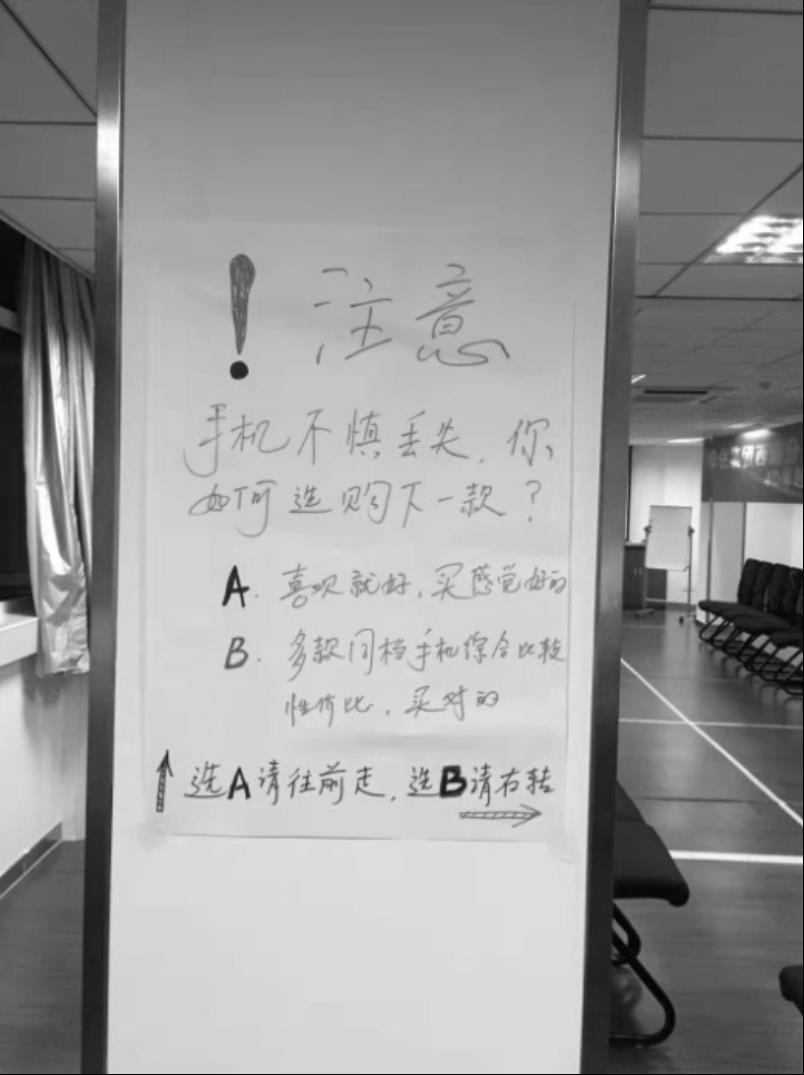 ! 注意
手机不慎丢失,你
如何选购下一款?
A. 喜欢就好,买感觉好的
B. 多款同档手机综合比较
性价比,买对的
选A请往前走,选B请右转